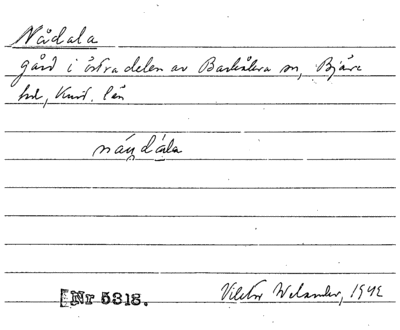 Nådala
gård i östra delen av Barkåkra sn, Bjäre
hd, Krist. län
Nr 5318.
Viktor Welander, 1942